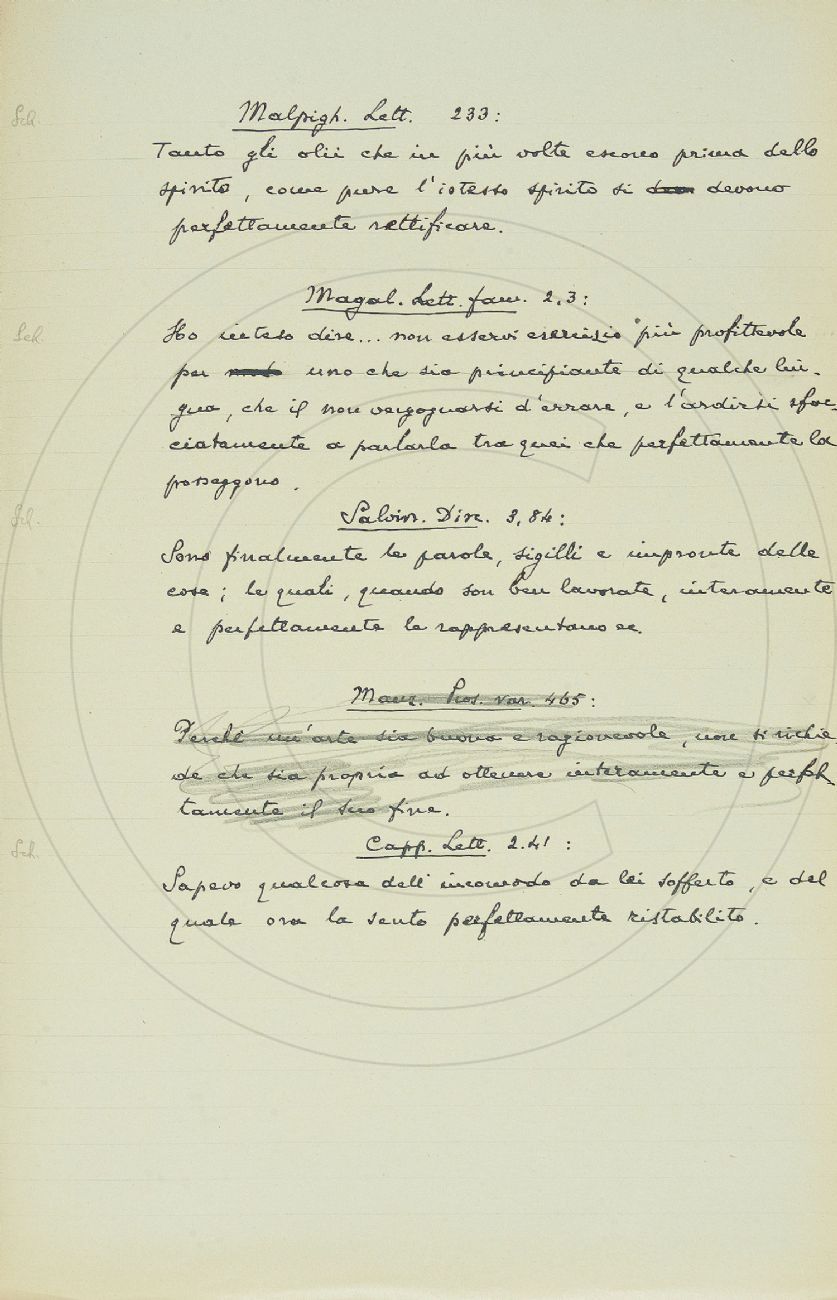 Sch. Malpigh. Lett. 233:
Tanto gli olii che in più volte escono prima dello
spirito, come pure l'istesso spirito si devono
perfettamente rettificare.
Magal. Lett. fam. 2.3:
Sch. Ho inteso dire... non esservi esercizio più profittevole
per uno che sia principiante di qualche lin-
gua, che il non vergognarsi d'errare, e l'ardirsi sfac-
ciatamente a parlarla tra quei che perfettamente la
posseggono.
Sch. Salvin. Disc. 3,84:
Sono finalmente le parole, sigilli e impronte delle
cose; le quali, quando son ben lavorate, interamente
e perfettamente le rappresentano ec.
Manz. Pros. var. 465:
Perchè un'arte sia buona e ragionevole, non si richie-
de che sia propria ad ottenere interamente e perfet-
tamente il suo fine.
Sch. Capp. Lett. 2.41:
Sapevo qualcosa dell'incomodo da lei sofferto, e del
quale ora la sento perfettamente ristabilito.